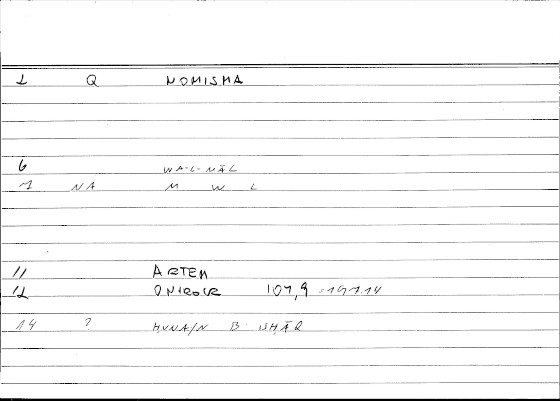 1 Q NOMISMA
6 WA-L-MĀL
7 NA M W L
11 ARTEM
12 ONIROCR 107,9 -191.14
14 ? ḤUNAIN B ISḤĀQ